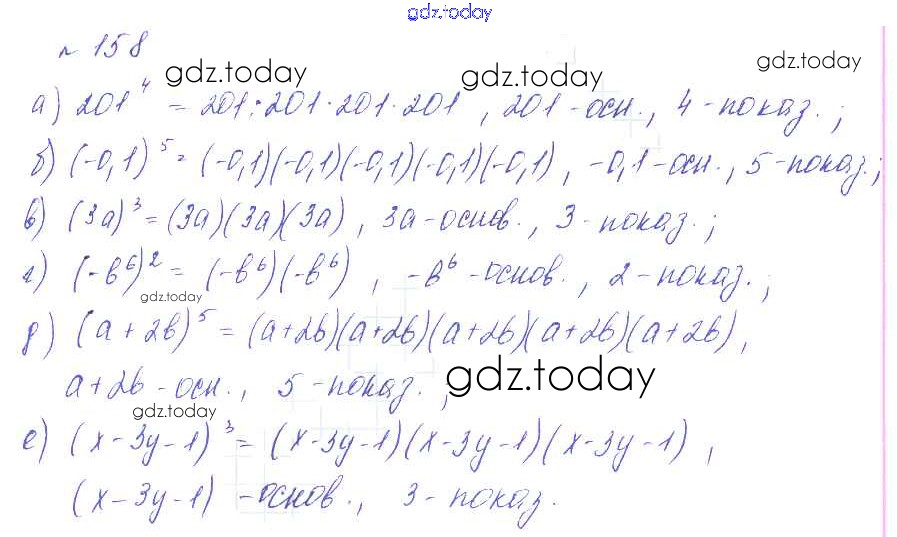 gdz.today
№ 158
gdz.today gdz.today gdz.today
а) 201⁴ = 201·201·201·201, 201-осн., 4-показ.;
б) (-0,1)⁵ = (-0,1)(-0,1)(-0,1)(-0,1)(-0,1), -0,1-осн., 5-показ.;
в) (3a)³ = (3a)(3a)(3a), 3a-основ., 3-показ.;
г) (-b⁶)² = (-b⁶)(-b⁶), -b⁶-основ., 2-показ.;
gdz.today
д) (a+2b)⁵ = (a+2b)(a+2b)(a+2b)(a+2b)(a+2b),
a+2b-осн., 5-показ.;
gdz.today
gdz.today
е) (x-3y-1)³ = (x-3y-1)(x-3y-1)(x-3y-1),
(x-3y-1)-основ., 3-показ.